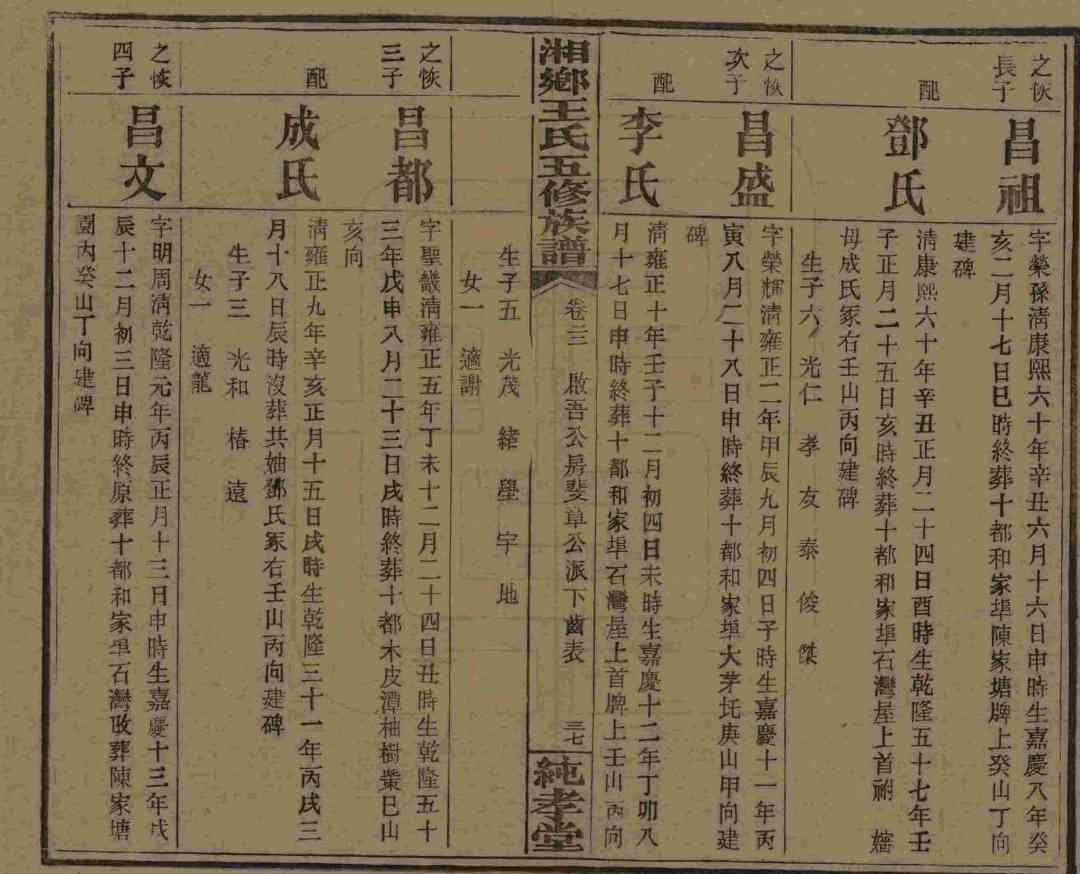 之恢
長子
昌祖
字榮孫淸康熙六十年辛丑六月十六日申時生嘉慶八年癸
亥二月十七日巳時終葬十都和家埠陳家塘牌上癸山丁向
建碑
配
鄧氏
淸康熙六十年辛丑正月二十四日酉時生乾隆五十七年壬
子正月二十五日亥時終葬十都和家埠石灣屋上首祔
母成氏冢右壬山丙向建碑
生子六 光仁 孝 友 泰 俊 傑
之恢
次子
昌盛
字榮輝淸雍正二年甲辰九月初四日子時生嘉慶十一年丙
寅八月二十八日申時終葬十都和家埠大茅坵庚山甲向建
碑
配
李氏
淸雍正十年壬子十二月初四日未時生嘉慶十二年丁卯八
月十七日申時終葬十都和家埠石灣屋上首牌上壬山丙向
湘鄉王氏五修族譜
卷二三 啟吾公房斐章公派下齒表 三七
純孝堂
生子五 光茂 緒 壆 宇 地
女一 適謝
之恢
三子
昌都
字聖叢淸雍正五年丁未十二月二十四日丑時生乾隆五十
三年戊申八月二十三日戌時終葬十都木皮潭柚樹巢巳山
亥向
配
成氏
淸雍正九年辛亥正月十五日戌時生乾隆三十一年丙戌三
月十八日辰時沒葬共妯鄧氏冢右壬山丙向建碑
生子三 光和 椿 遠
女一 適龍
之恢
四子
昌文
字明周淸乾隆元年丙辰正月十三日申時生嘉慶十三年戊
辰十二月初三日申時終原葬十都和家埠石灣改葬陳家塘
園內癸山丁向建碑